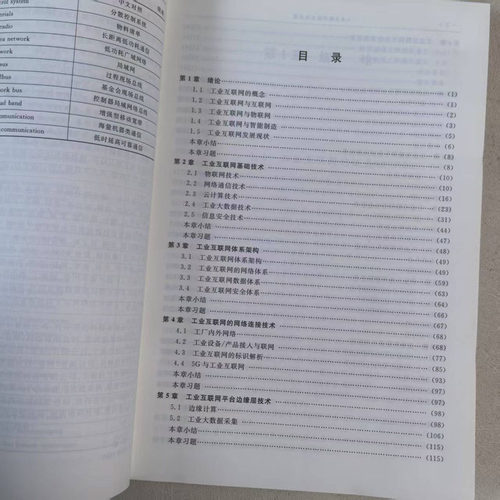 中文对照
分散控制系统
物料清单
长距离低功耗通信
低功耗广域网络
局域网
过程现场总线
基金会现场总线
控制器局域网络总线
增强型移动宽带
海量机器类通信
低时延高可靠通信
system
network
bus
network bus
band
munication
communication
目 录
第1章 绪论 (1)
1.1 工业互联网的概念 (1)
1.2 工业互联网与互联网
1.3 工业互联网与物联网
1.4 工业互联网与智能制造 (5)
1.5 工业互联网发展现状 (6)
本章小结 (8)
本章习题 (8)
第2章 工业互联网基础技术 (10)
2.1 物联网技术 (10)
2.2 网络通信技术 (16)
2.3 云计算技术 (23)
2.4 工业大数据技术 (31)
2.5 信息安全技术 (44)
本章小结 (47)
本章习题 (48)
第3章 工业互联网体系架构 (49)
3.1 工业互联网体系架构 (49)
3.2 工业互联网的网络体系 (51)
3.3 工业互联网数据体系
3.4 工业互联网安全体系 (63)
本章小结 (67)
本章习题 (67)
第4章 工业互联网的网络连接技术 (68)
4.1 工厂内外网络 (68)
4.2 工业设备/产品接入与联网 (77)
4.3 工业互联网的标识解析 (85)
4.4 5G与工业互联网 (93)
本章小结 (97)
本章习题 (97)
第5章 工业互联网平台边缘层技术 (98)
5.1 边缘计算 (98)
5.2 工业大数据采集 (106)
本章小结 (115)
本章习题 (115)